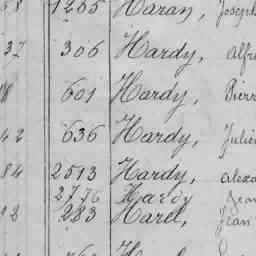 1265 Haran, Joseph
37 306 Hardy, Alfre
601 Hardy, Pierr
42 636 Hardy, Julie
84 2513 Hardy, Alexa
2776 Hardy Jean
12 283 Harel, Jean